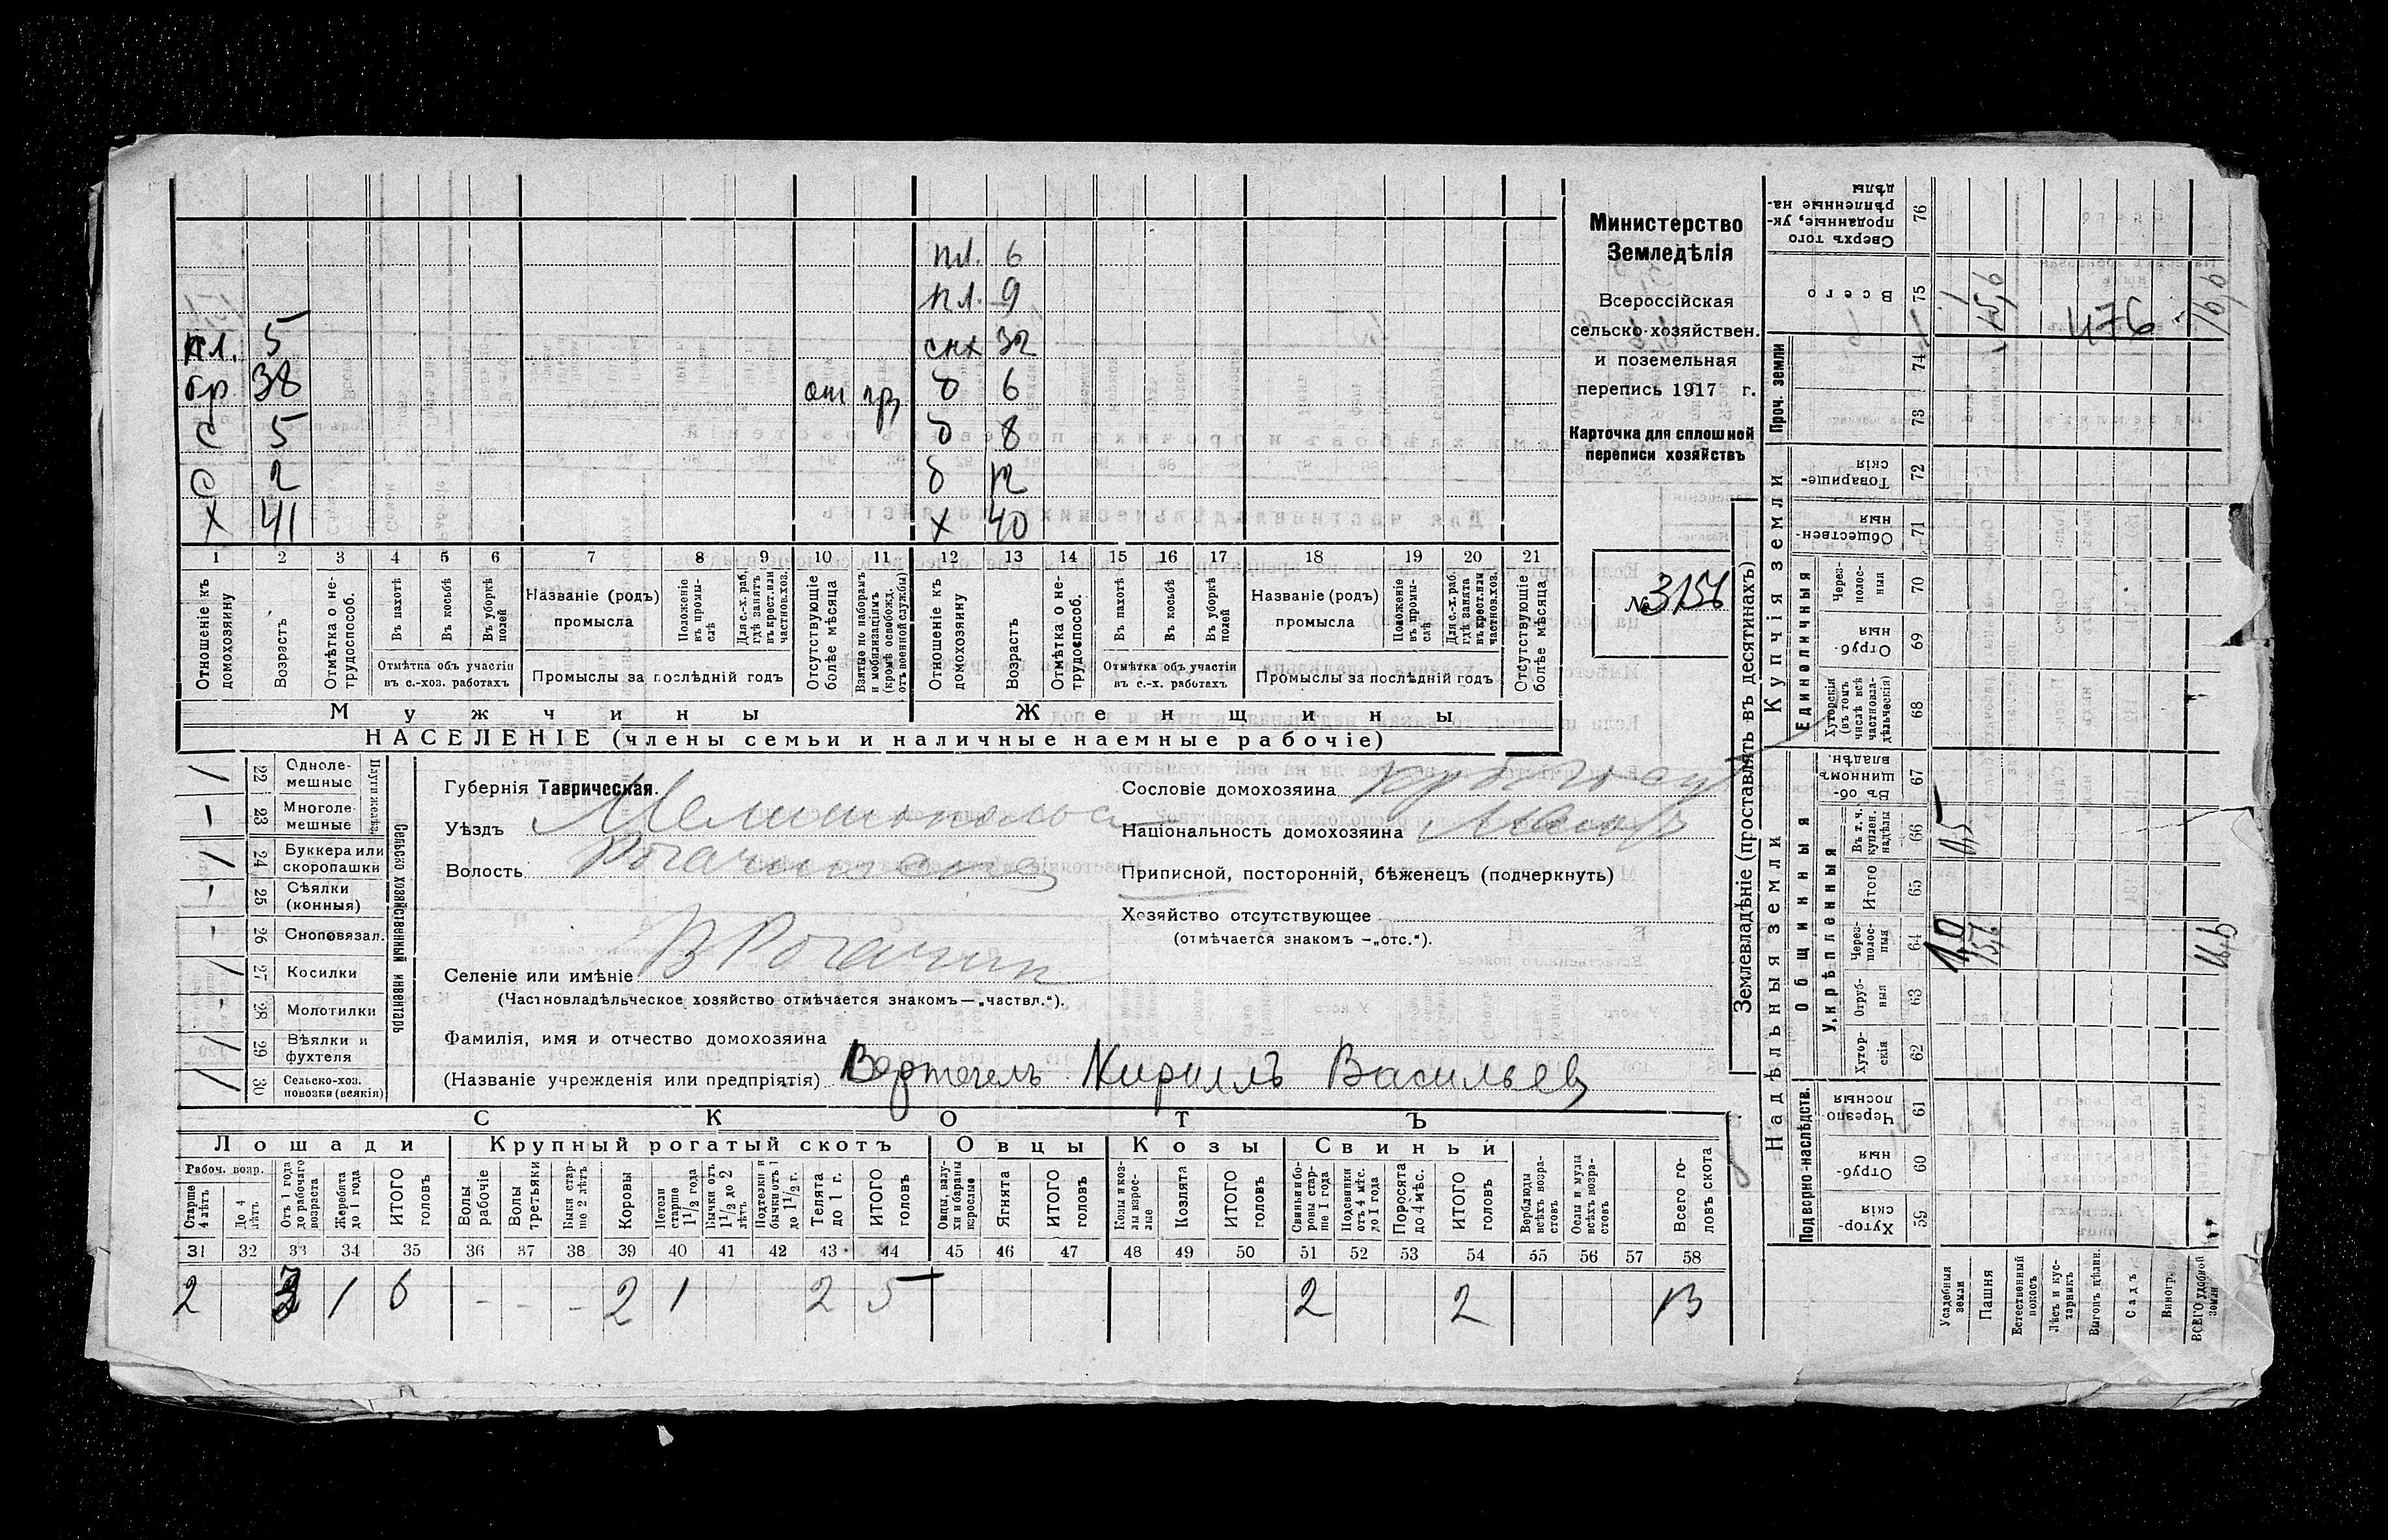 Министерство
Земледѣлія
Всероссійская
сельско-хозяйствен.
и поземельная
перепись 1917 г.
Карточка для сплошной
переписи хозяйствъ
№ 3156
пл. 6
пл. 9
пл. 5 снх 32
бр 38 от пр, д 6
с 5 д 8
с 2 д 12
х 41 х 40
1 2 3 4 5 6 7 8 9 10 11 12 13 14 15 16 17 18 19 20 21
Отношеніе къ домохозяину
Возрастъ
Отмѣтка о не-трудоспособ.
Въ пахотѣ
Въ косьбѣ
Въ уборкѣ полей
Отмѣтка объ участіи
въ с.-хоз. работахъ
Названіе (родъ)
промысла
Положеніе въ промы-слѣ
Для с.-х. раб. гдѣ занятъ въ крест. или частнов. хоз.
Промыслы за послѣдній годъ
Отсутствующіе болѣе мѣсяца
Взятые по наборамъ и мобилизаціямъ (кромѣ освобожд. отъ военной службы)
Отношеніе къ домохозяину
Возрастъ
Отмѣтка о не-трудоспособ.
Въ пахотѣ
Въ косьбѣ
Въ уборкѣ полей
Отмѣтка объ участіи
въ с.-х. работахъ
Названіе (родъ)
промысла
Положеніе въ промы-слѣ
Для с.-х. раб. гдѣ занята въ крест. или частнов. хоз.
Промыслы за послѣдній годъ
Отсутствующіе болѣе мѣсяца
Мужчины Женщины
НАСЕЛЕНІЕ (члены семьи и наличные наемные рабочіе)
Сельско хозяйственный инвентарь
/ 22 Одноле-мешные
- 23 Многоле-мешные
/ 24 Буккера или скоропашки
- 25 Сѣялки (конныя)
- 26 Сноповязал.
/ 27 Косилки
- 28 Молотилки
/ 29 Вѣялки и фухтеля
/ 30 Сельско-хоз. повозки (всякія)
Губернія Таврическая.
Уѣздъ
Волость
Селеніе или имѣніе В Рогачик
(Частновладѣльческое хозяйство отмѣчается знакомъ—„частвл.“).
Фамилія, имя и отчество домохозяина
(Названіе учрежденія или предпріятія) Вертегелъ Кирилъ Васильев
Сословіе домохозяина
Національность домохозяина
Приписной, посторонній, бѣженецъ (подчеркнуть)
Хозяйство отсутствующее
(отмѣчается знакомъ —„отс.“).
СКОТЪ
Лошади Крупный рогатый скотъ Овцы Козы Свиньи
Рабоч. возр.
Старше 4 лѣтъ
До 4 лѣтъ
Отъ 1 года до рабочаго возраста
Жеребята до 1 года
ИТОГО головъ
Волы рабочіе
Волы третьяки
Быки стар-ше 2 лѣтъ
Коровы
Нетели старше 1 1/2 года
Бычки отъ 1 1/2 до 2 лѣтъ
Подтелки и бычки отъ 1 до 1 1/2 г.
Телята до 1 г.
ИТОГО головъ
Овцы, валу-хи и бараны взрослые
Ягнята
ИТОГО головъ
Козы и коз-лы взрос-лые
Козлята
ИТОГО головъ
Свиньи и бо-ровы стар-ше 1 года
Подсвинки отъ 4 мѣс. до 1 года
Поросята до 4 мѣс.
ИТОГО головъ
Верблюды всѣхъ возра-стовъ
Ослы и мулы всѣхъ возра-стовъ
Всего го-ловъ скота
31 32 33 34 35 36 37 38 39 40 41 42 43 44 45 46 47 48 49 50 51 52 53 54 55 56 57 58
2 3 1 6 - - - 2 1 2 5 2 2 13
Землевладѣніе (проставлять въ десятинахъ)
Надѣльныя земли Купчія земли Проч. земли
Подворно-наслѣдств. Общинныя Единоличныя
Укрѣпленныя
59 Хутор-скія
60 Отруб-ныя
61 Черезпо лосныя
62 Хутор-скія
63 Отруб-ныя
64 Через-полос-ныя
65 Итого
66 Въ т. ч. куплен. надѣлы
67 Въ об-щинномъ владѣн.
68 Хуторскія (въ томъ числѣ всѣ частновла-дѣльческія)
69 Отруб-ныя
70 Через-полос-ныя
71 Обществен-ныя
72 Товарище-скія
73
74
75 Всего
76 Сверхъ того проданные, ук-рѣпленные на-дѣлы
Усадебныя земли
Пашня
Естественный покосъ
Лѣсъ и кус-тарникъ
Выгонъ цѣлин.
Садъ
Виногр.
ВСЕГО удобной земли
476